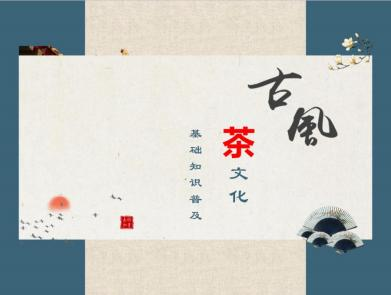 古風
茶文化
基础知识普及